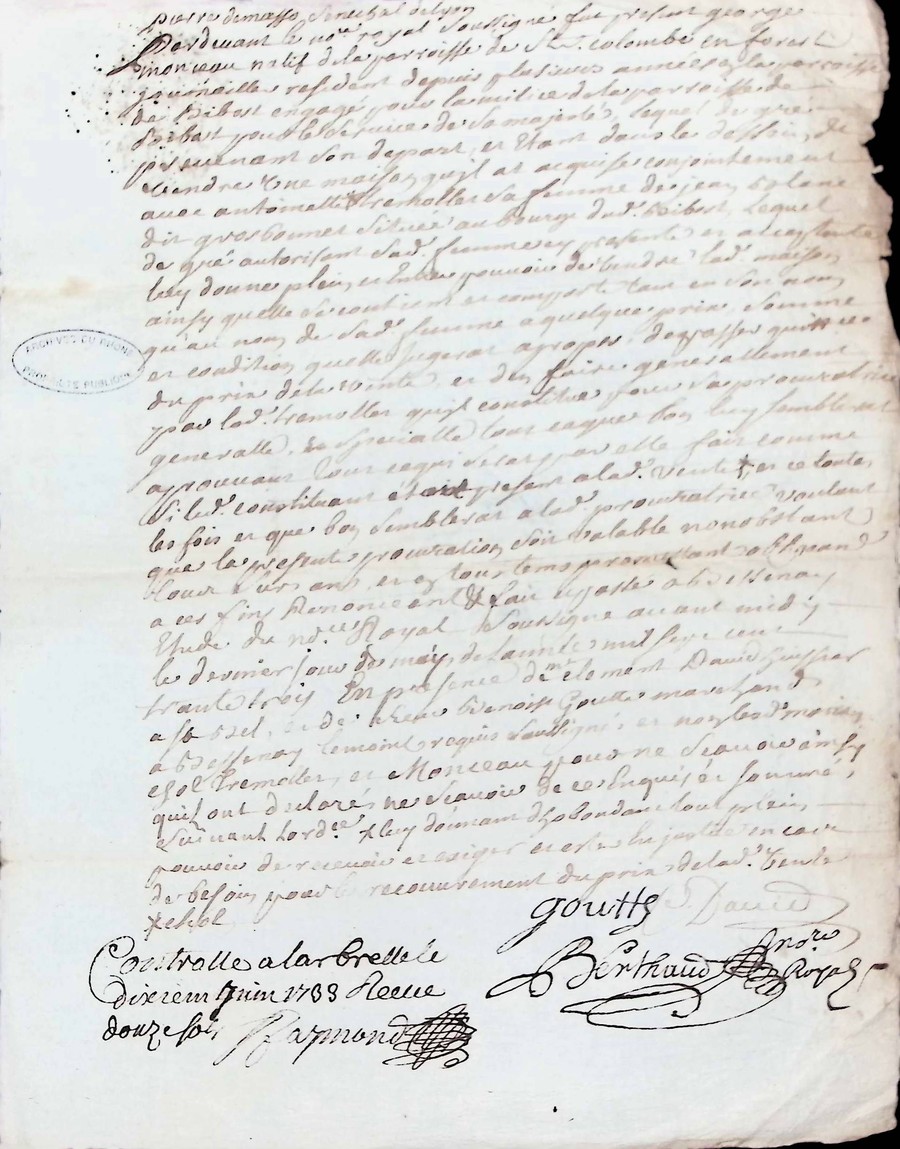 pierre demasso, senechal de lyon
Pardevant le nore. royal soussigné fut present george
monceau natif de la parroisse de Ste. colombe en forest
journaillier resident depuis plusieurs années en la parroisse
de Bibost engagé pour la milice de la parroisse de
Bibost pour le service de sa majesté, lequel de gré
prevenant son depart, et Etant dans le dessein de
vendre Une maison quil at acquise conjointement
avec antoinette tremollet sa femme de jean
dit grosbonnet située au bourg dud. Bibost, lequel
de gré autorisant sad. femme icy presente et acceptante
luy donne plein et Entier pouvoir de Vendre lad. maison
ainsy quelle se contient et comporte tant en son nom
qu'au nom de sad. femme a quelque prix, somme
et condition quelle jugerat apropos, de passer quittance
du prix de la Vente et den faire generallement
par lad. tremollet quil constitue pour sa procuratrice
generalle et specialle tout ce que bon luy semblerat
aprouvant tout ce qui serat par elle fait comme
si led. constituant étoit present a lad. vente, et ce toutes
les fois et que bon semblerat a lad. procuratrice voulant
que la presente procuration soit valable nonobstant
tour surs ans, et en tous tems promettant obligeant
a ces fins Renonceant & fait et passé a Bessenay
Etude du nore. Royal soussigné avant midy
le dernier jour de may de lannée mil sept cent
trante trois En presence de me. clement David huissier
a st bel, et de sieur Benoist Goutte marchand
a Bessenay temoins requis soussignés et non lesd. mariés
Tremollet, et Monceau pour ne scavoir ainsy
quils ont declarés ne scavoir de ce Enquis et sommés
suivant lordce. x luy donnant dhabondant tout plein
pouvoir de recevoir et exiger et ester En justice en cas
de besoin pour le recouvrement du prix de lad. Vente
goutte C. David
Controlle a larbresle le
dixiem Juin 1733 Receu
douze sols Raymond
Berthaud nore. Royal
ARCHIVES DU RHONE